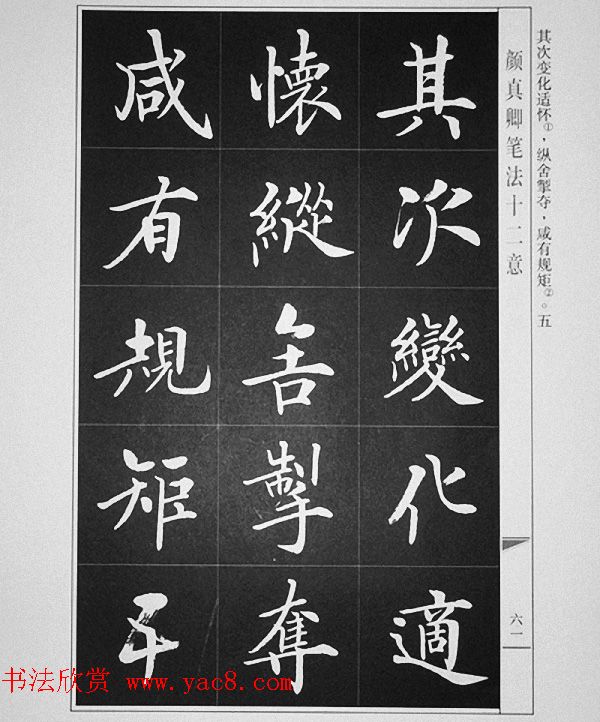 其次变化适怀①，纵舍掣夺，咸有规矩②。五
颜真卿笔法十二意
六一
其次變化適
懷縱舍掣奪
咸有規矩五
书法欣赏 www.yac8.com